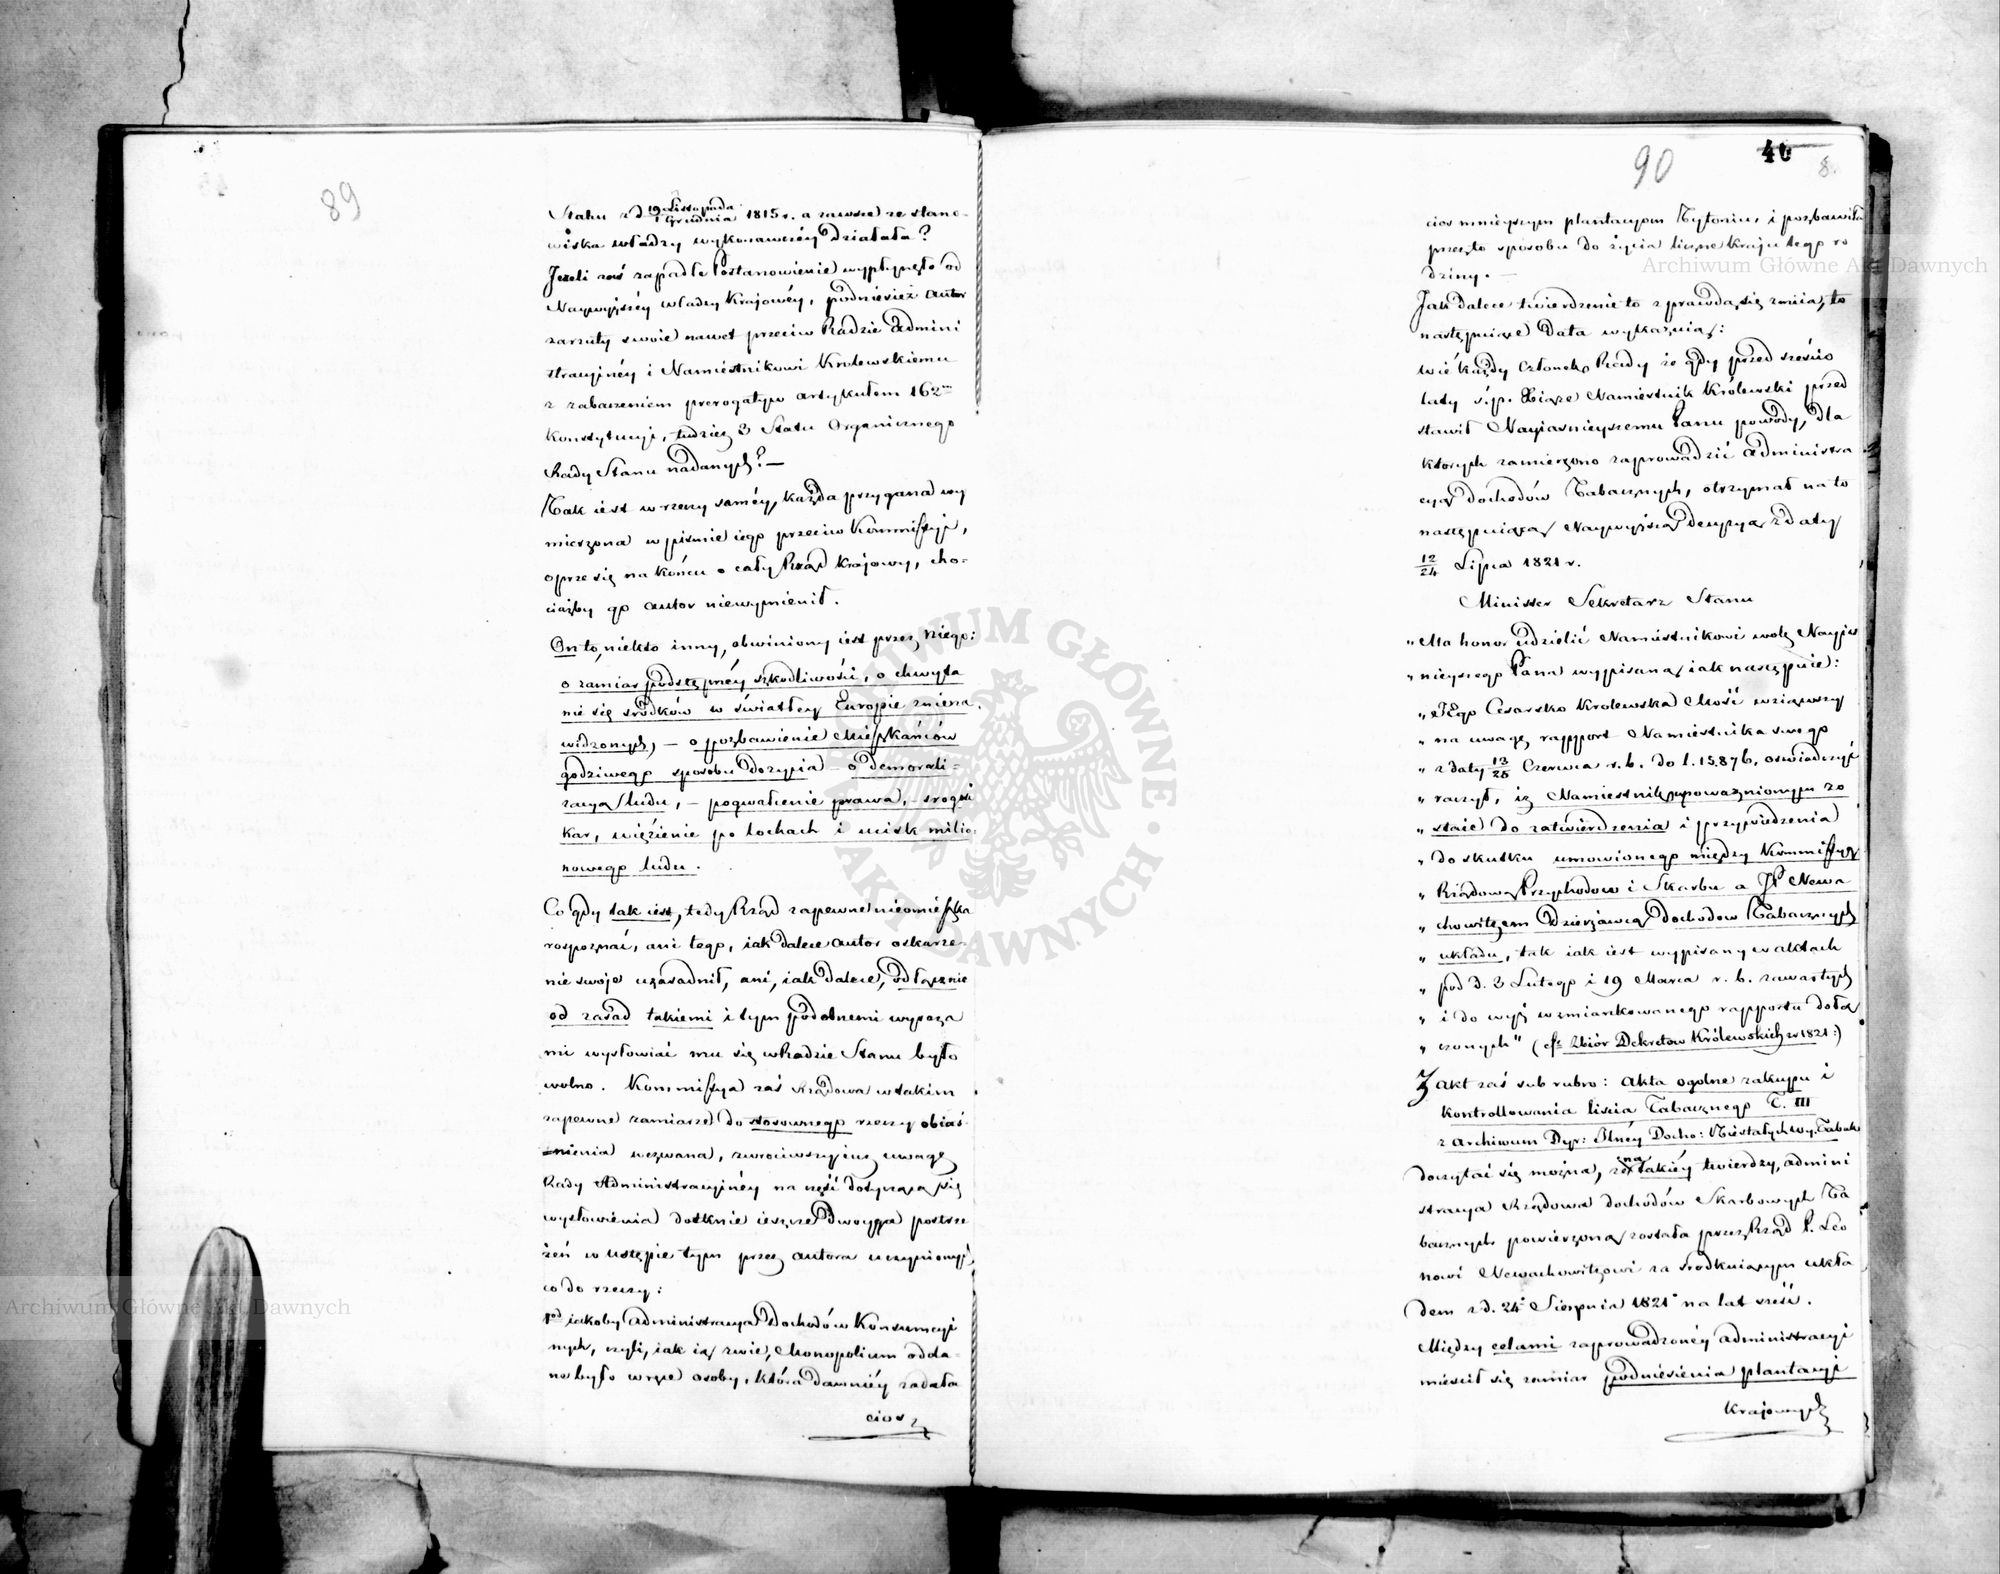 89
Statu z d 19 Listopada
1 Grudnia 1815 r. a zawsze ze stano-
wiska władzy wykonawczéy działała?
Jeżeli zaś zapadłe Postanowienie wypłynęło od
Naywyższéy władzy Krajowéy, podniesież autor
zarzuty swoie nawet przeciw Radzie Admini
stracyjnéy i Namiestnikowi Królewskiemu
z zabaczeniem prerogatyw artykułem 162m
Konstytucyi, tudzież 3 Statu Organicznego
Rady Stanu nadanych? —
Tak iest w rzeczy saméy, każda przygana wy
mierzona w piśmie iego przeciw Kommissyi,
oprze się na końcu o cały Rząd Krajowy, cho-
ciażby go autor niewymienił.
On to, niekto inny, obwiniony iest przez niego:
o zamiar podstępnéy szkodliwości, o chwyta
nie się srodków w światłey Europie zniena
widzonych, — o pozbawienie Mieszkańców
godziwego sposobu do życia — o demorali-
zacyą ludu, — pogwałcenie prawa, — srogość
kar, więzienie po lochach i ucisk milio-
nowego ludu.
Co gdy tak iest, tedy Rząd zapewne nieomieszka
rozpoznać, ani tego, iak dalece autor oskarże-
nie swoje uzasadnił, ani, iak dalece, odłącznie
od zasad takiemi i tym podobnemi wyraza
mi wysłowiać mu się w Radzie Stanu było
wolno. Kommissya zaś Rządowa w takim
zapewne zamiarze do stosownego rzeczy obiaś-
nienia wezwana, zwróciwszy iuż uwagę
Rady Administracyjnéy na część dotyczącą się
wysłowienia dotknie ieszcze dwoyga postrze
żeń w ustępie tym przez autora uczynionych,
co do rzeczy:
1od iakoby administracya dochodów Konsumcyi
nych, czyli, iak ią zwie, Monopolium odda-
ne było w ręce osoby, która dawniéy zadała
cios
90
40
8.
cios mnieyszym plantacyom Tytoniu, i pozbawiła
przez to sposobu do życia liczne kraju tego ro
dziny. —
Jak dalece twierdzenie to z prawdą się zmiia, to
następuiące Data wykazuią:
wié każdy Członek Rady że gdy przed sześcio
laty ś. p. Xiąże Namiestnik Królewski przed
stawił Nayiasnieyszemu Panu powody, dla
ktorych zamierzono zaprowadzić administra
cyą dochodów Tabacznych, otrzymał na to
następuiącą Naywyższą decyzyą z daty
12/24 Lipca 1821 r.
Minister Sekretarz Stanu
„ Ma honor udzielić Namiestnikowi wolę Nayias
„ nieyszego Pana wypisaną iak następuie:
„ Jego Cesarsko Krolewska Mość wziąwszy
„ na uwagę rapport Namiestnika swego
„ z daty 13/25 Czerwca r. b. do l. 15,876, oswiadczyć
„ raczył, iż Namiestnik upoważnionym zo
„ staie do zatwierdzenia i przywiedzenia
„ do skutku umowionego między Kommissyą
„ Rządową Przychodow i Skarbu a JP Newa
„ chowiczem Dzierżawcą dochodow Tabacznych
„ układu, tak iak iest wypisany w aktach
„ pod d. 3 Lutego i 19 Marca r. b. zawartych
„ i do wyż wzmiankowanego rapportu dołą
„ czonych" (cfr Zbiór Dekretow Królewskich w 1821:)
Z akt zaś sub rubro: Akta ogolne zakupu i
kontrollowania liscia Tabacznego T. III
z Archiwum Dyr: Glnéy Docho: Niestałych wy: Tabak
doczytać się można, że na takiéy twierdzy, admini
stracya Rządowa dochodów Skarbowych Ta
bacznych powierzoną została przez Rząd P. Leo
nowi Newachowiczowi za srodkuiącym ukła
dem z d. 24° Sierpnia 1821° na lat sześć.
Między celami zaprowadzonéy administracyi
mieścił się zamiar podniesienia plantacyi
Krajowych